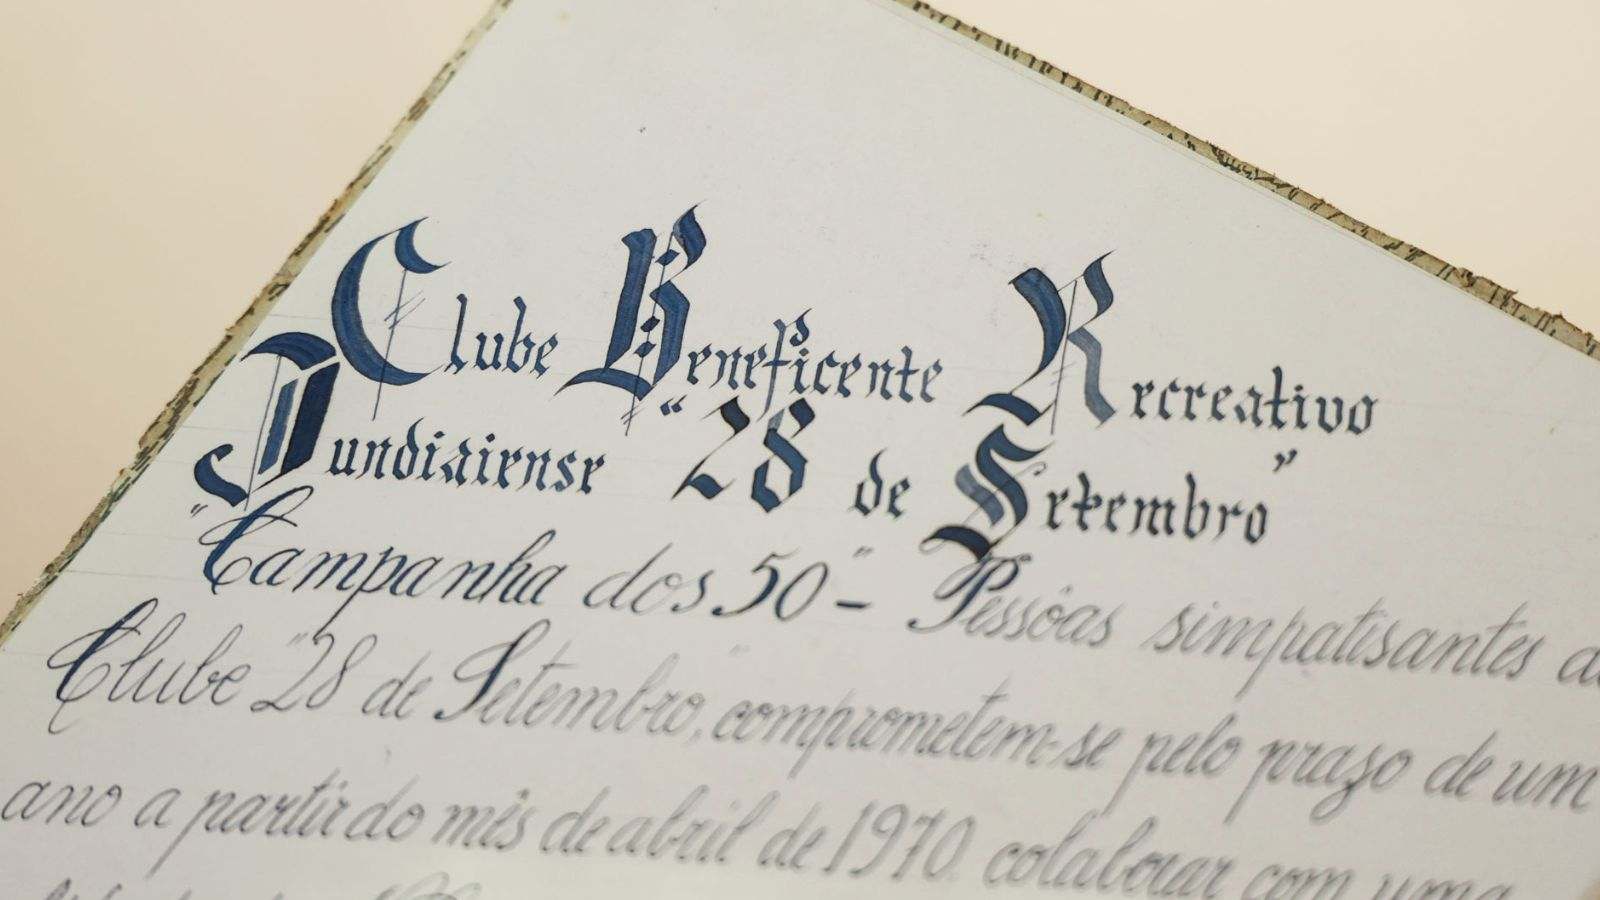 Clube Beneficente Recreativo
Jundiaiense "28 de Setembro"
"Campanha dos 50" - Pessôas simpatisantes
Clube "28 de Setembro", comprometem-se pelo prazo de um
ano a partir do mês de abril de 1970 colaborar com uma